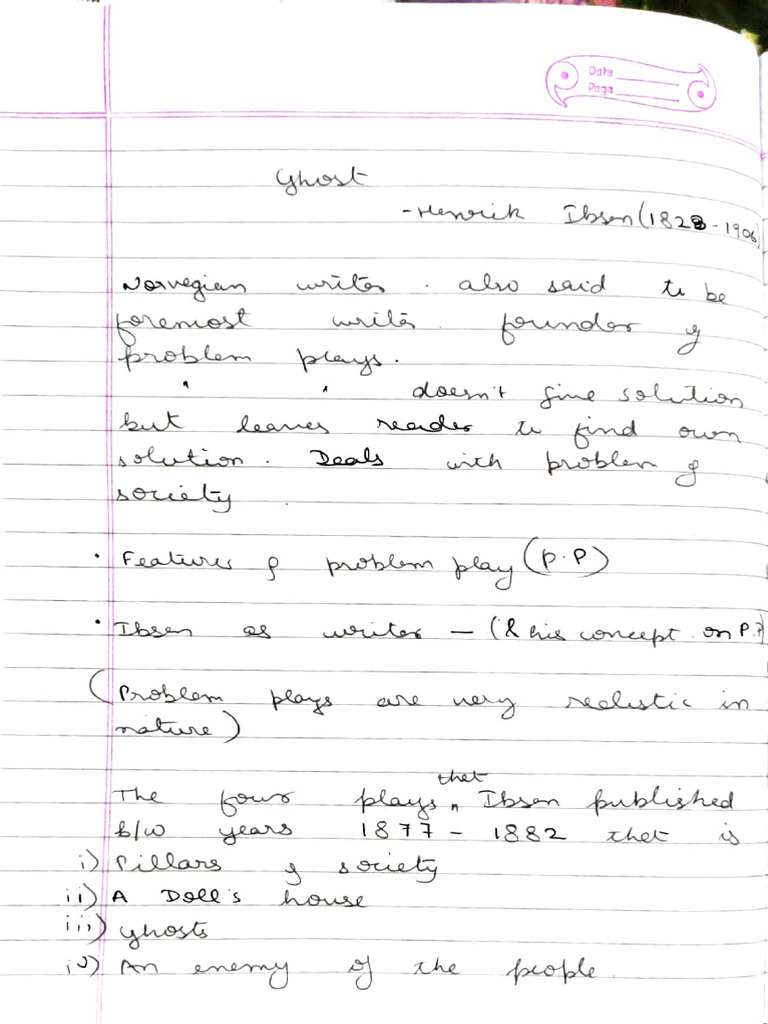 Date
Page
Ghost
-Henrik Ibsen (1828-1906)
Norvegian writer. also said to be
foremost writer. founder of
problem plays.
" " doesn't give solution
but leaves reader to find own
solution. Deals with problem of
society.
• Features of problem play (P.P)
• Ibsen as writer - (& his concept on P.P)
(Problem plays are very realistic in
nature)
The four plays that Ibsen published
b/w years 1877 - 1882 that is
i) Pillars of society
ii) A Doll's house
iii) Ghosts
iv) An enemy of the people.